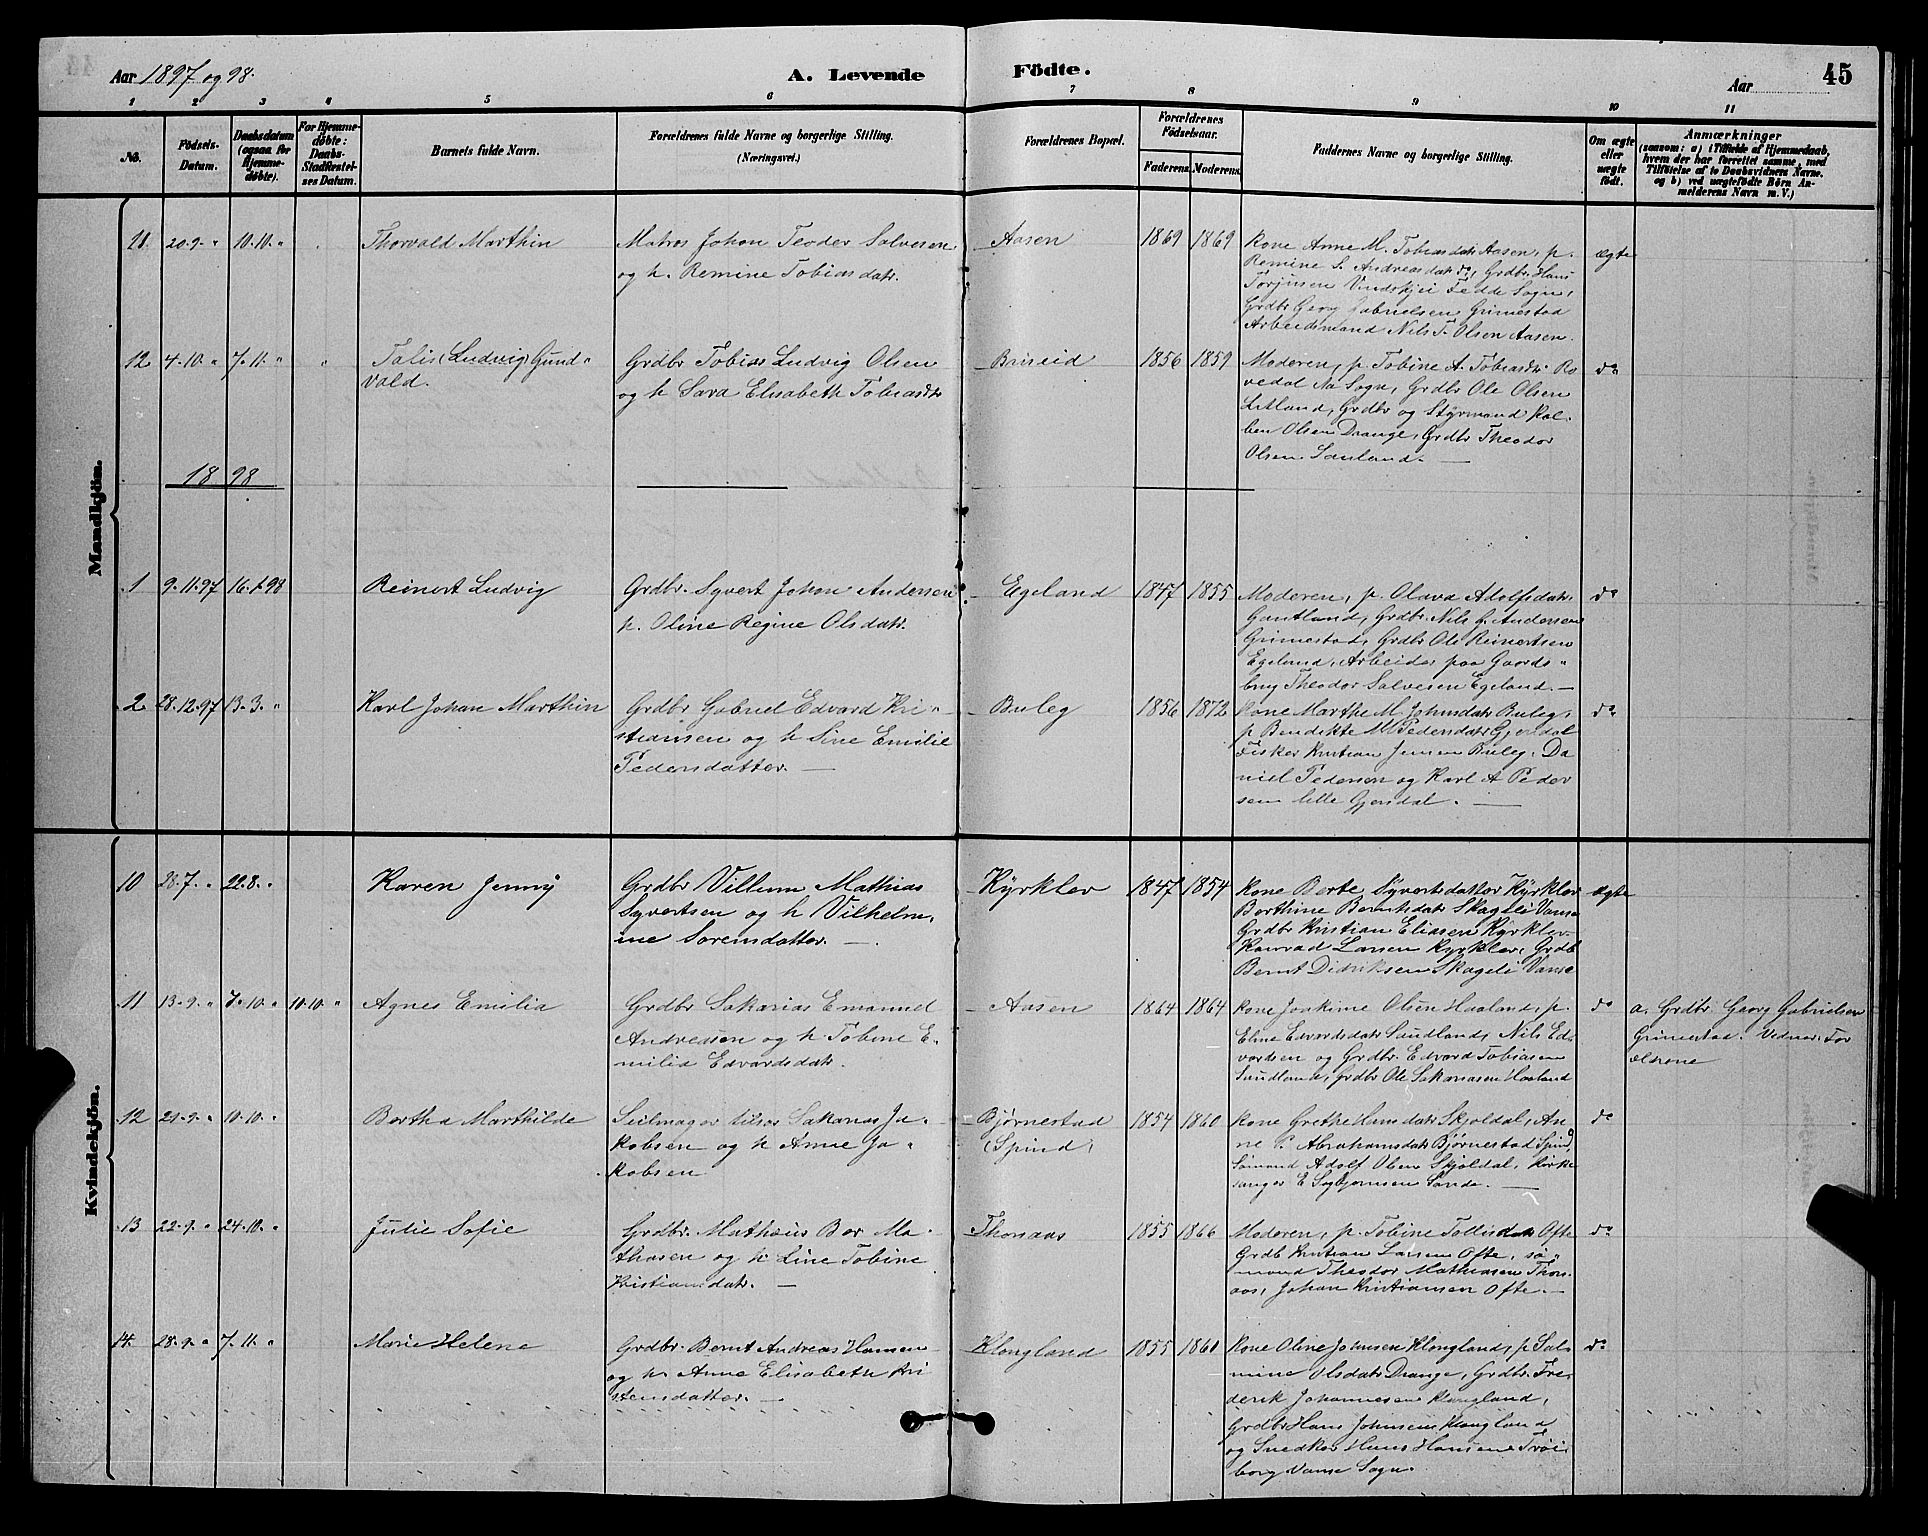 Aar 1897 og 98.
A. Levende Födte.
Aar
45
1 2 3 4 5 6 7 8 9 10 11
No. Födsels-Datum. Daabsdatum (ogsaa for Hjemmedöbte). For Hjemmedöbte: Daabs-Stadfæstelses Datum. Barnets fulde Navn. Forældrenes fulde Navne og borgerlige Stilling. (Næringsvei.) Forældrenes Bopæl. Forældrenes Födselsaar. Faderens. Moderens. Faddernes Navne og borgerlige Stilling. Om ægte eller uægte födt.
Anmærkninger
(saasom: a) i Tilfælde af Hjemmedaab,
hvem der har forrettet samme, med
Tilföielse af to Daabsvidners Navne.
og b) ved uægtefödte Börn An-
melderens Navn m. V.)
Mandkjön.
11 20-9- " 10.10. " Thorvald Marthin
Matros Johan Teodor Salvesen
og h. Remine Tobiasdatr.
Aasen 1869 1869
Kone Anne M. Tobiasdatr Aasen, p.
Remine S. Andreasdatr do, Grdbr. Hans
Torjusen Vindskjei Fedde Sogn,
Grdbr Georg Gabrielsen Grimestad
Arbeidsmand Nils T. Olsen Aasen.
ægte
12 4-10- " 7-11- " " Talis (Ludvig) Gund"
vald.
Grdbr Tobias Ludvig Olsen
og h Sara Elisabeth Tobiasdtr
Briseid 1856 1859
Moderen, p. Tobine A. Tobiasdtr Ro
vedal Na Sogn, Grdbr Ole Olsen
Litland, Grdbr og Styrmand Kol-
ben Olsen Drange, Grdbr Theodor
Olsen Sanland.
do
1898
1 9-11-97 16-1-98 Reinert Ludvig
Grdbr. Syvert Johan Andersen
h. Oline Regine Olsdatr.
Egeland 1847 1855
Moderen, p. Olava Adolfsdatr
Gautland, Grdbr. Nils G. Andersen
Grimestad, Grdbr Ole Reinertsen
Egeland, Arbeider paa Gaards"
brug Theodor Salvesen Egeland.
do
2 28-12-97 13-3- " Karl Johan Marthin
Grdbr Gabriel Edvard Kri"
stiansen og h Sine Emilie
Pedersdatter.
Buleg 1856 1872
Kone Marthe M. Johnsdatr Buleg,
p Bendikte M Pedersdatr Gjersdal
Fisker Kristian Jensen Buleg, Da
niel Pedersen og Karl A Peder
sen lille Gjersdal.
do
Kvindekjön.
10 28-7- " 22.8- " Karen Jenny
Grdbr Villum Mathias
Syvertsen og h Vilhelm,
ine Sorensdatter.
Kyrklev 1847 1854
Kone Berte Syvertsdatter Kyrklev
Borthine Berntsdatr Skageli Vanse
Grdbr Kristian Eliasen Kyrklev
Konrad Larsen Kyrklev, Grdb
Bernt Didriksen Skageli Vanse
ægte
11 13-9- " 7-10- " 10-10- " Agnes Emilia
Grdbr Sakarias Emanuel
Andreasen og h Tobine E-
milie Edvardsdatr.
Aasen 1864 1864
Kone Joakime Olsen Haaland, p.
Eline Edvardsdatr Sudland, Nils Ed-
vardsen og Grdbr. Edvard Tobiasen
Sudland, Grdbr Ole Sakariasen Haaland
do
a. Grdbr Georg Gabrielsen
Grimestad. Vidner: For
ældrene
12 21-9- " 10-10. " Bertha Marthilde
Seilmager Sakarias Ja-
kobsen og h Anne Ja"
kobsen
Bjørnestad
(Spind)
1854 1860
Kone Grethe Hansdatr Skjoldal, An-
ne P. Abrahamsdatr Bjørnestad Spind,
Sømand Adolf Olsen Skjoldal, Kirke
sanger E Sigbjørnsen Sande.
do
13 22-9- " 24-10- " Julie Sofie
Grdbr. Mathæus Ma-
thæsen og h Line Tobine
Kristiansdatr.
Thonaas 1855 1866
Moderen, p. Tobine Tollisdatr Ofte
Grdb Kristian Larsen Ofte, sø"
mand Theodor Mathiasen Thon-
aas, Johan Kristiansen Ofte.
do
14. 28-9- " 7-11- " Marie Helene
Grdbr. Bernt Andreas Hansen
og h. Anne Elisabeth Kri
stensdatter.
Klongland 1855 1860
Kone Oline Johnsen Klongland, p Sal-
mine Olsdatr Drange, Grdbr. Fre-
derik Johannesen Klongland,
Grdbr Hans Johnsen Klongland
og Snedker Hans Hansen Trøi-
borg Vanse Sogn.
do